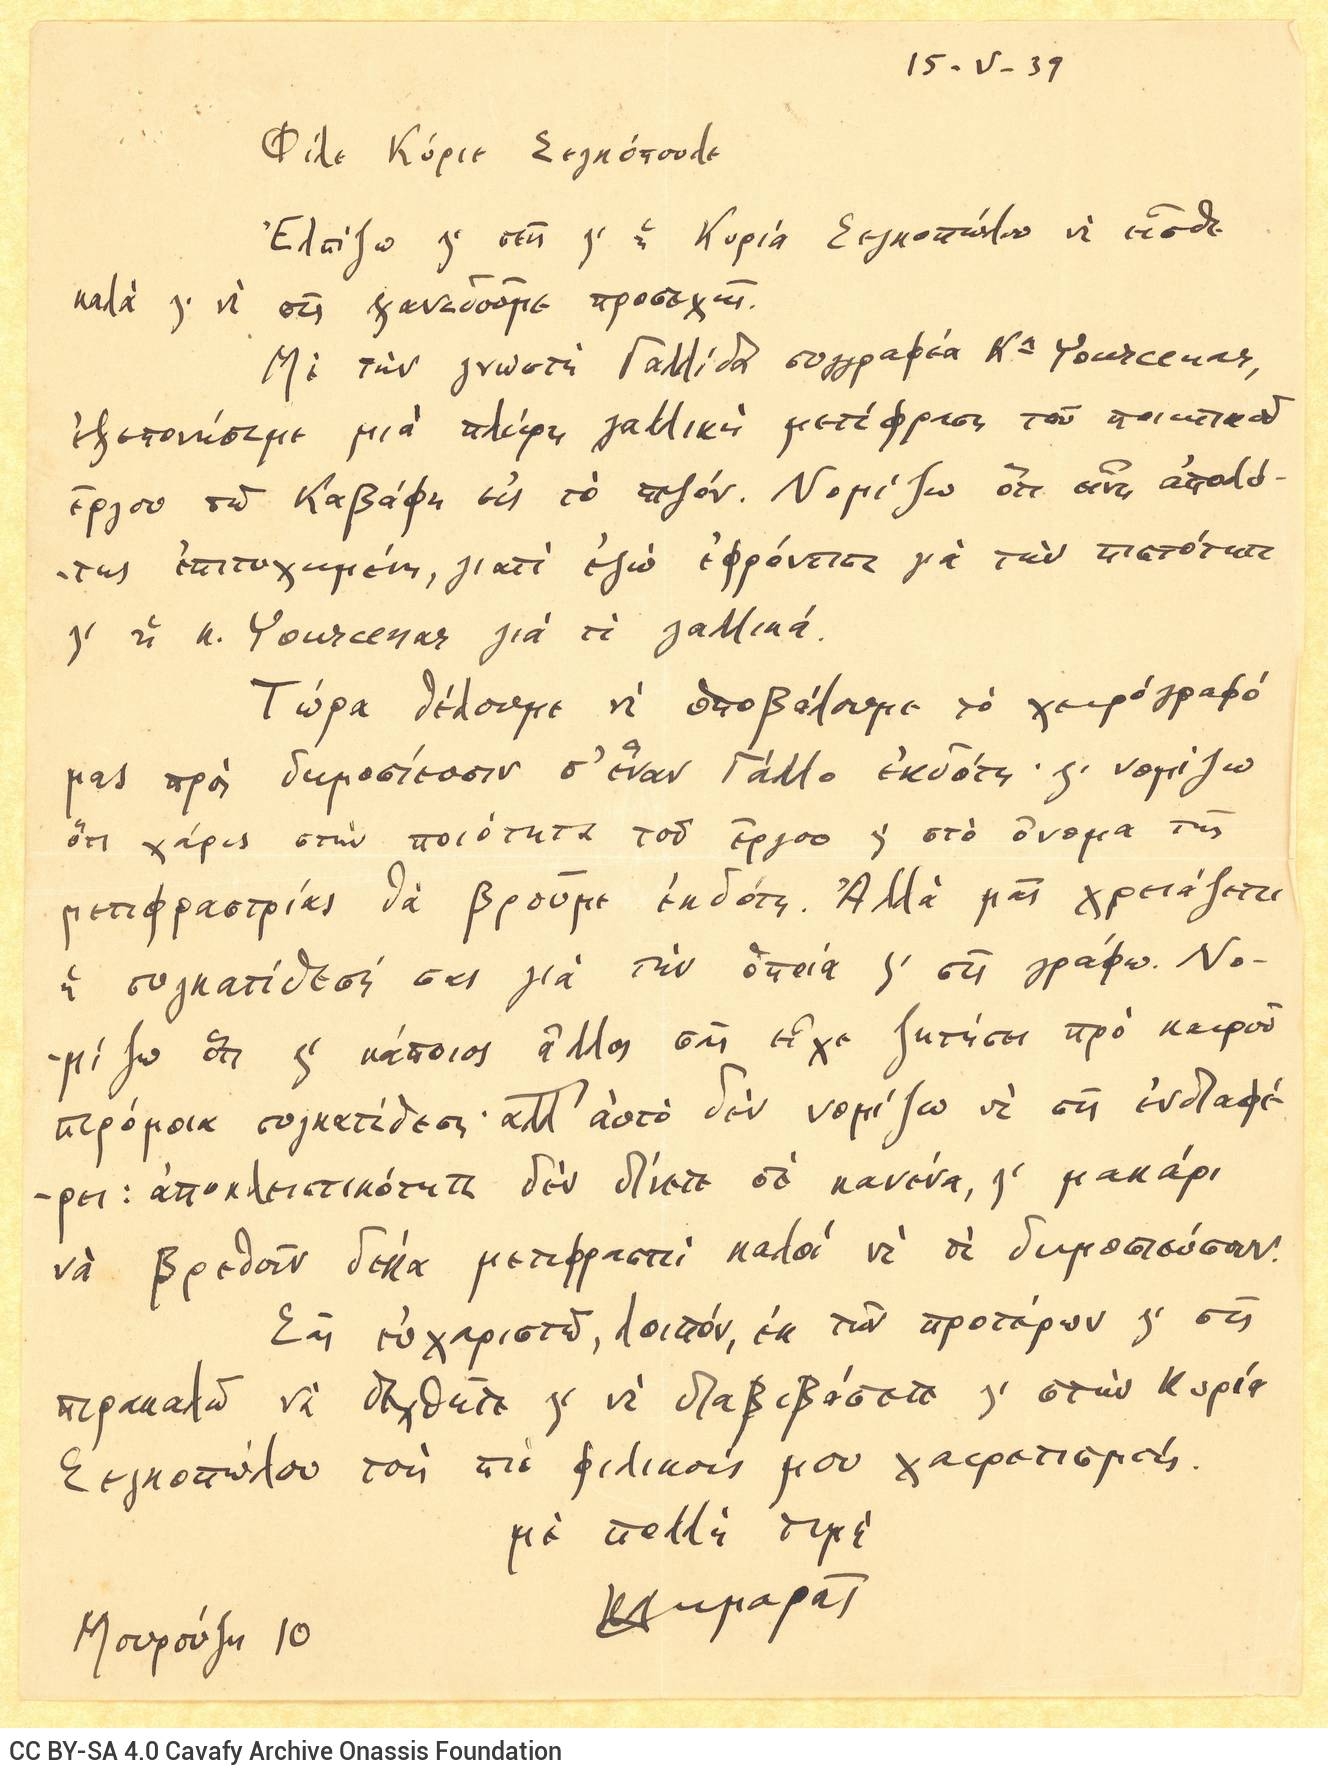 15-V-39
Φίλε Κύριε Σεγκόπουλε
Ἐλπίζω κ' σεῖς κ' ἡ Κυρία Σεγκοπούλου νὰ εἶσθε
καλὰ κ' νὰ σᾶς ξαναδοῦμε προσεχῶς.
Μὲ τὴν γνωστὴ Γαλλίδα συγγραφέα Κα Yourcenar,
ἐξεπονήσαμε μιὰ πλήρη γαλλικὴ μετάφραση τοῦ ποιητικοῦ
ἔργου τοῦ Καβάφη εἰς τὸ πεζόν. Νομίζω ὅτι εἶναι ἀπολύ-
-τως ἐπιτυχημένη, γιατὶ ἐγὼ ἐφρόντισα γιὰ τὴν πιστότητα
κ' ἡ κ. Yourcenar γιὰ τὰ γαλλικά.
Τώρα θέλουμε νὰ ὑποβάλουμε τὸ χειρόγραφό
μας πρὸς δημοσίευσιν σ' ἕναν Γάλλο ἐκδότη· κ' νομίζω
ὅτι χάρις στὴν ποιότητα τοῦ ἔργου κ' στὸ ὄνομα τῆς
μεταφραστρίας θὰ βροῦμε ἐκδότη. Ἀλλὰ μᾶς χρειάζεται
ἡ συγκατάθεσή σας γιὰ τὴν ὁποία κ' σᾶς γράφω. Νο-
-μίζω ὅτι κ' κάποιος ἄλλος σᾶς εἶχε ζητήσει πρὸ καιροῦ
παρόμοια συγκατάθεση· ἀλλ' αὐτὸ δὲν νομίζω νὰ σᾶς ἐνδιαφέ-
-ρει: ἀποκλειστικότητα δὲν δίνετε σὲ κανένα, κ' μακάρι
νὰ βρεθοῦν δέκα μεταφρασταὶ καλοὶ νὰ τὰ δημοσιεύσουν.
Σᾶς εὐχαριστῶ, λοιπόν, ἐκ τῶν προτέρων κ' σᾶς
παρακαλῶ νὰ δεχθῆτε κ' νὰ διαβιβάσετε κ' στὴν Κυρία
Σεγκοπούλου τοὺς πιὸ φιλικούς μου χαιρετισμούς.
μὲ πολλὴ τιμὴ
ΚΔημαρᾶς
Μουρούζη 10
CC BY-SA 4.0 Cavafy Archive Onassis Foundation